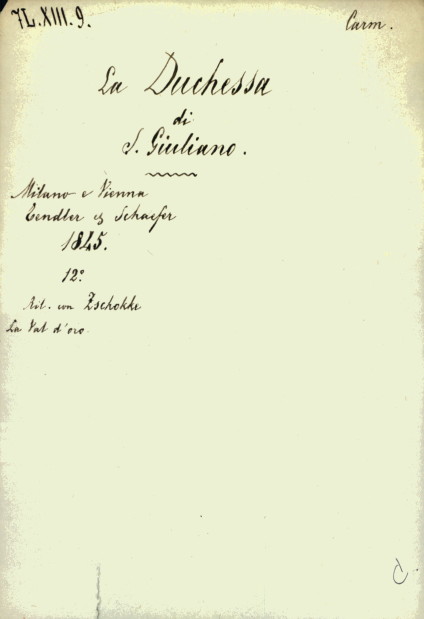 7L.XIII.9.
Carm.
La Duchessa
di
S. Giuliano.
Milano e Vienna
Tendler & Schaefer
1845.
12°
Ril. con Zschokke
La Val d'oro